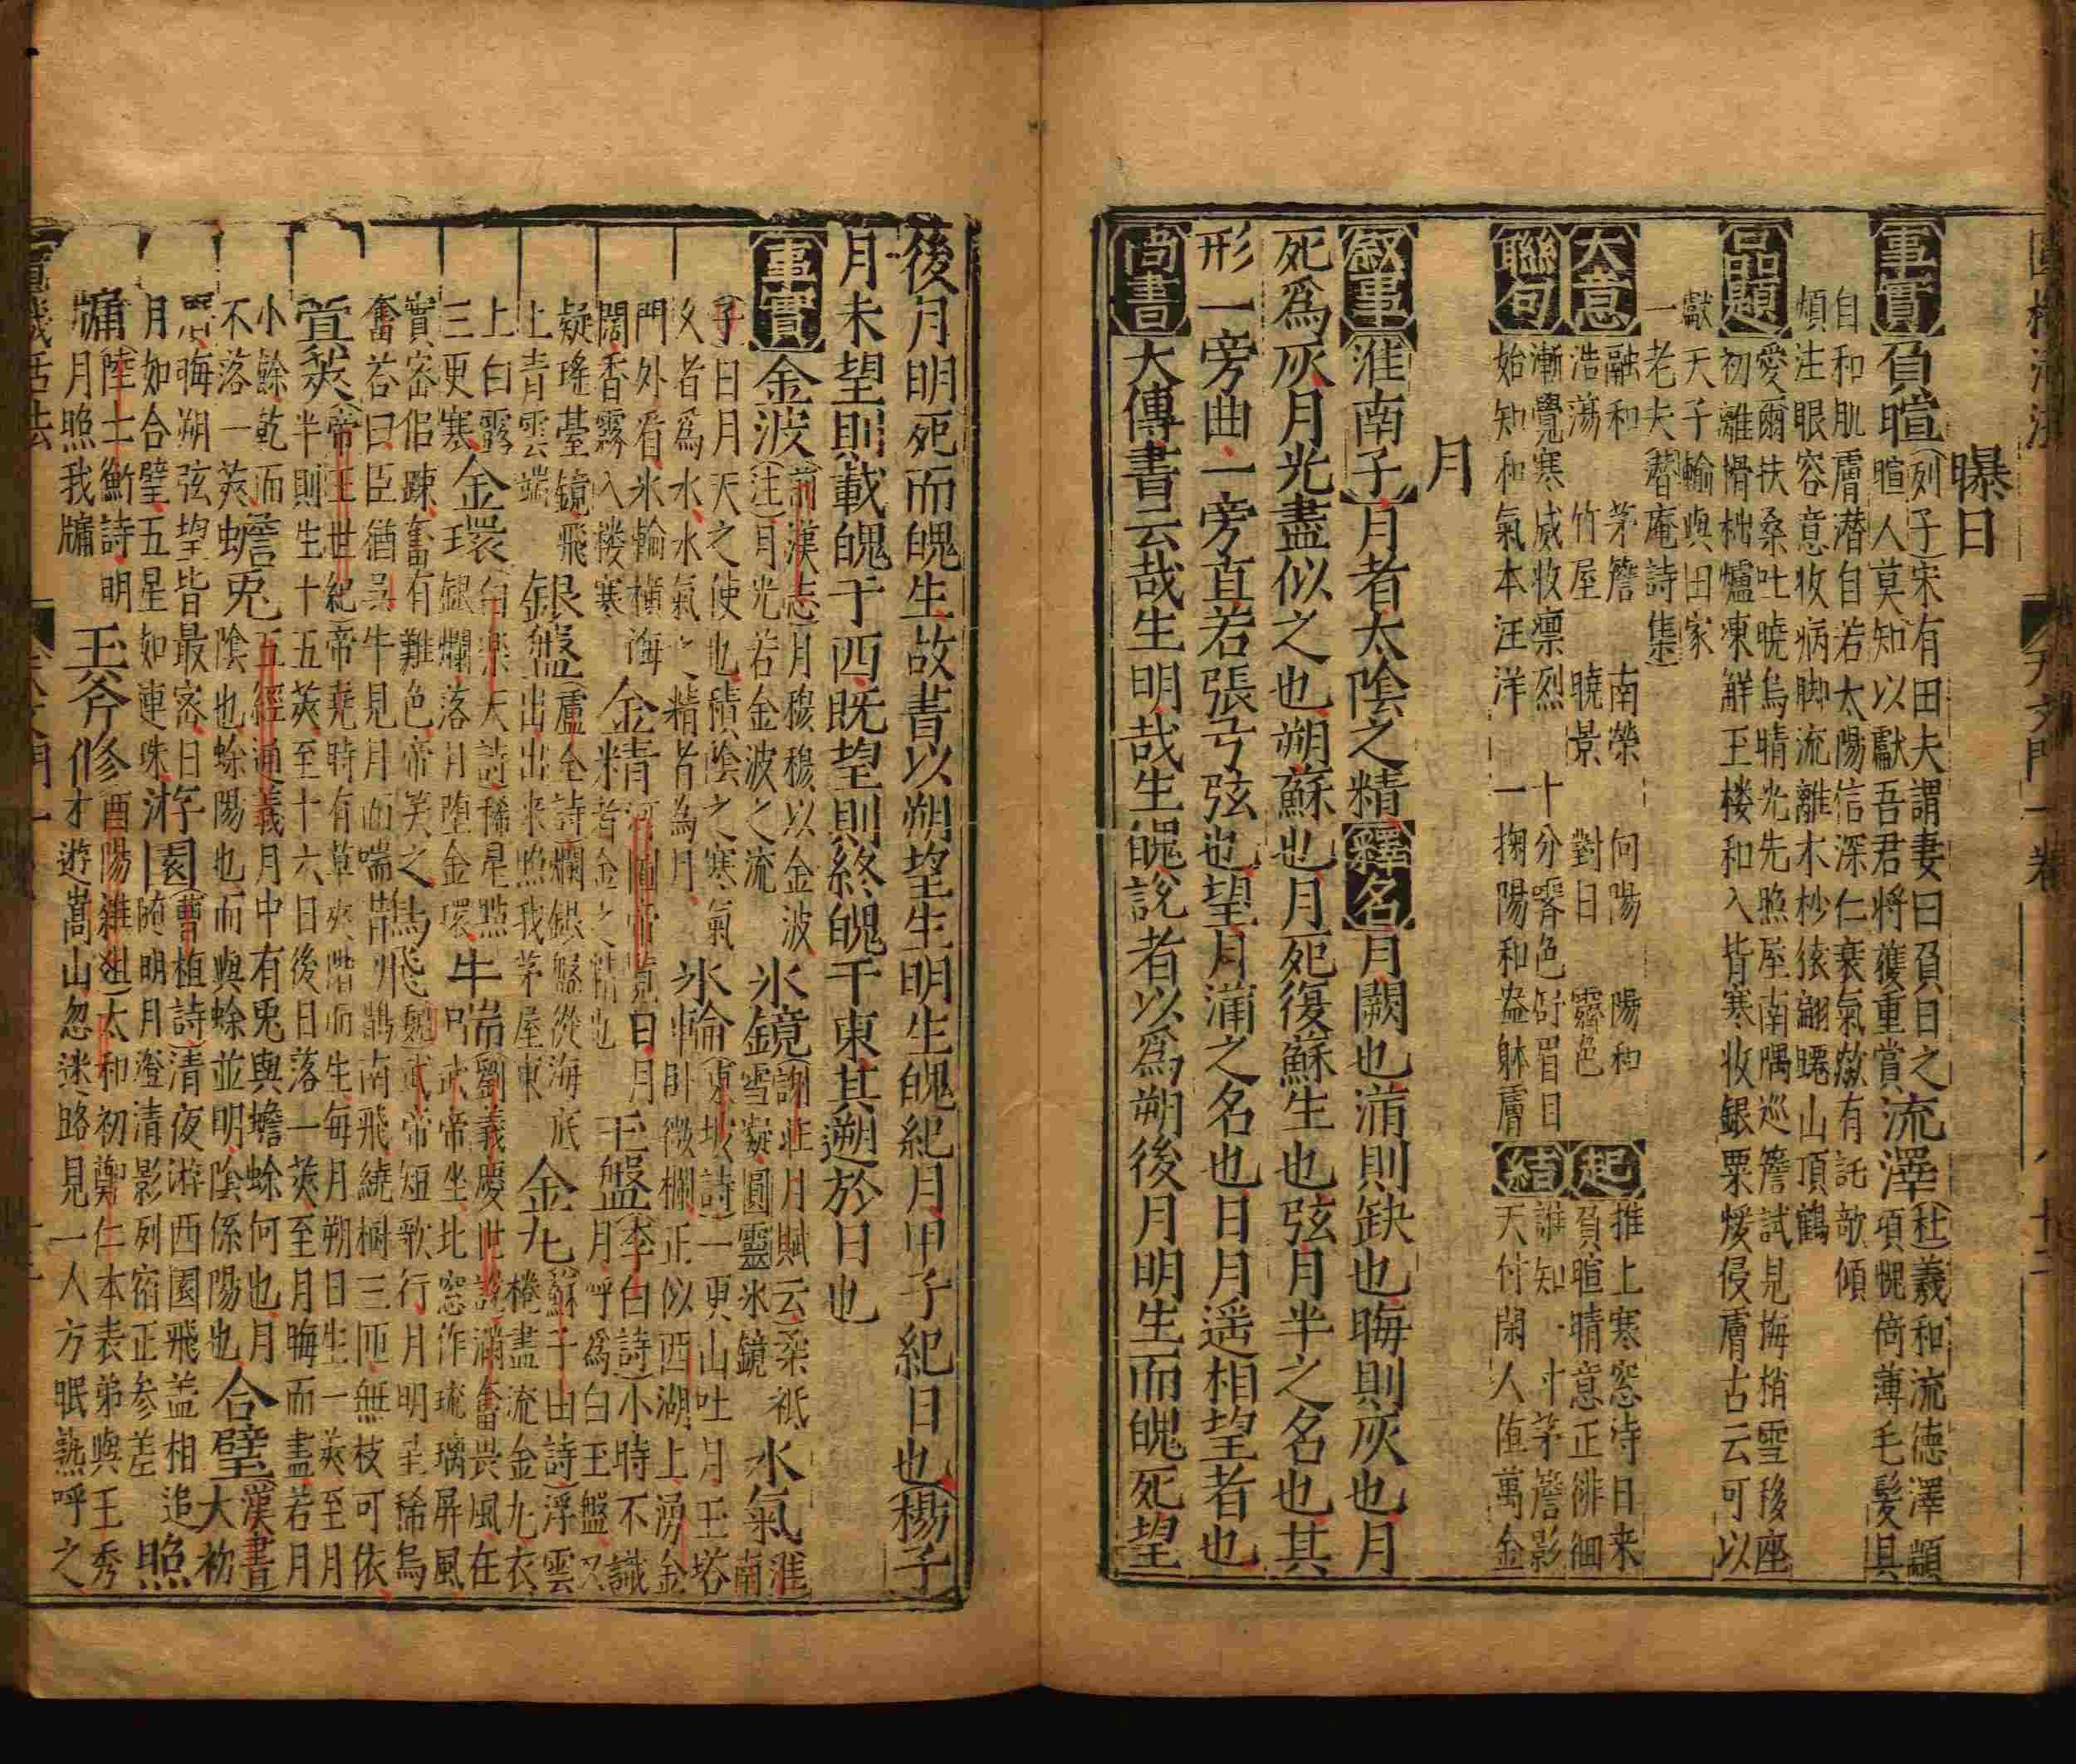 曝日
事實 負暄(列子)宋有田夫謂妻曰負日之
暄人莫知以獻吾君將獲重賞 流澤(杜)羲和流德澤顓
頊愧倚薄毛髮具
自和肌膚潛自若太陽信深仁衰氣欻有託敧傾
煩注眼容意收病脚流離木杪猿翩躚山頂鶴
品題 愛爾扶桑吐曉烏晴光先照屋南隅巡簷試見梅梢雪移座
初離榾柮爐凍解玉楼和入皆寒收銀粟煖侵膚古云可以
獻天子輸與田家
一老夫(替庵詩集)
大意 融和 茅簷 南榮 向陽 陽和
浩蕩 竹屋 曉景 對日 霽色
起 推上寒窓待日来
負暄晴意正徘徊
聯句 漸覺寒威收凛烈 十分霽色舒眉目
始知和氣本汪洋 一掬陽和盎躰膚
結 誰知一寸茅簷影
天付閑人值萬金
月
叙事 淮南子月者太陰之精 釋名 月闕也滿則缺也晦則灰也月
死爲灰月光盡似之也朔蘇也月死復蘇生也弦月半之名也其
形一旁曲一旁直若張弓弦也望月滿之名也日月遥相望者也
尚書 大傳書云哉生明哉生魄說者以爲朔後月明生而魄死望
後月明死而魄生故書以朔望生明生魄紀月甲子紀日也(楊子
月未望則載魄于西既望則終魄于東其遡於日也
事實 金波(前漢志)月穆穆以金波
(注)月光若金波之流 氷鏡(謝莊月賦云)柔祇
雪凝圓靈氷鏡 水氣 淮
南
子曰月天之使也積陰之寒氣
久者爲水水氣之精者為月 氷輪(東坡詩)一更山吐月玉塔
卧微欄正似西湖上湧金
門外看氷輪橫海
闊香霧入楼寒 金精 河圖帝覽曰月
金精者金之精也 玉盤(李白詩)小時不識
月呼爲白玉盤又
疑瑤臺鏡飛
上青雲端 銀盤(盧仝詩)爛銀盤從海底
出出来照我茅屋東 金丸(蘇子由詩)浮雲
捲盡流金丸衣
上白露
三更寒 金環(白樂天詩)稀星點
銀爛落月墮金環 牛喘(劉義慶世說)滿奮畏風在
武帝坐北窓作琉璃屏風
實密佀踈奮有難色帝笑之
奮荅曰臣猶吳牛見月而喘 烏飛(魏武帝短歌行)月明星稀烏
鵲南飛繞樹三匝無枝可依
蓂莢(帝王世紀)帝堯時有草夾階而生每月朔日生一莢至月
半則生十五莢至十六日後日落一莢至月晦而盡若月
小餘乾而
不落一莢 蟾兎 五經通義月中有兎與蟾蜍何也月
陰也蜍陽也而與蜍並明陰係陽也 合璧(漢書)
大初
晦朔弦望皆最密日
月如合璧五星如連珠 游園(曹植詩)清夜游西園飛盖相追
随明月澄清影列宿正参差 照
牖(陸士衡詩)明
月照我牖 玉斧修(酉陽雜俎)太和初鄭仁本表弟與王秀
才遊嵩山忽迷路見一人方眠熟呼之